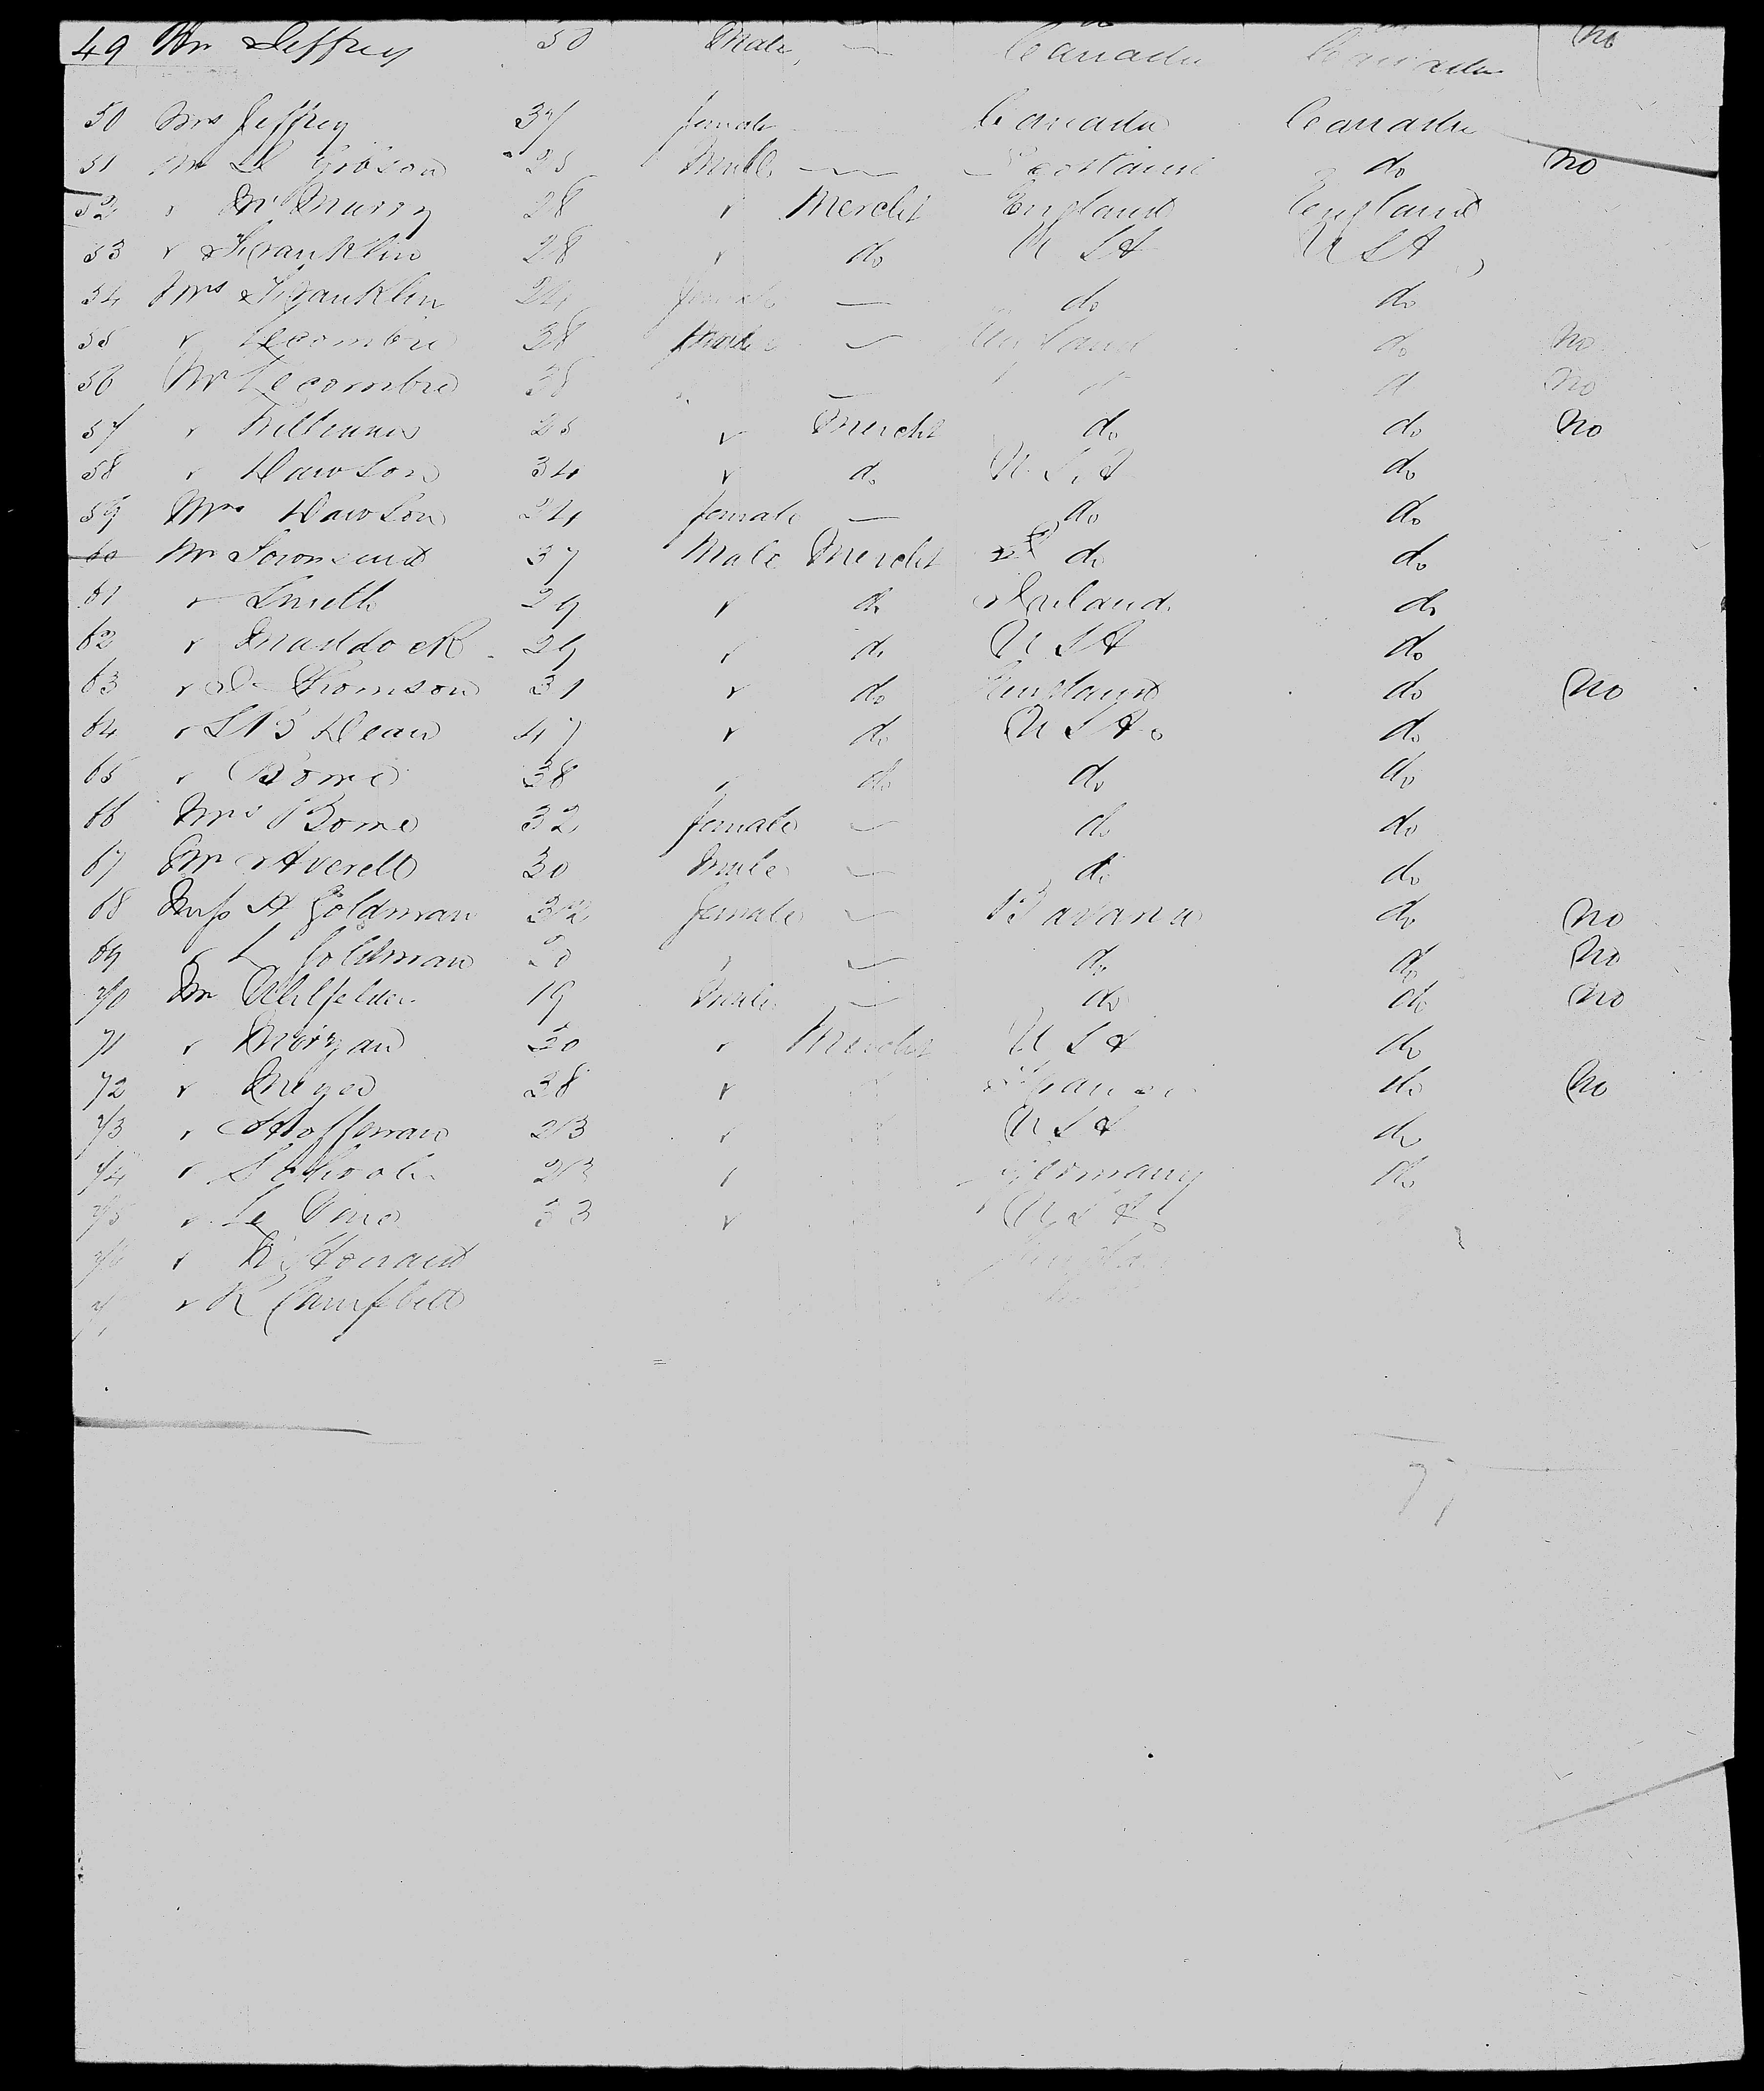 49 Mr Jeffrey 50 Male — Canada Canada no
50 Mrs Jeffrey 37 female Canada Canada
51 Mr Gibson 25 Male — Scotland do no
52 " Mc Murry 28 " Mercht England England
53 " Franklin 28 " do U S A U S A
54 Mrs Franklin 24 female — do do
55 " Lecombre 38 female — England do no
56 Mr Lecombre 38 " — " d no
57 " Williams 25 " Mercht do do no
58 " Dawson 34 " do U S A do
59 Mrs Dawson 24 female — do do
60 Mr Townsend 37 Male Mercht do do
61 " Smith 29 " do Ireland do
62 " Murdock 29 " do U S A do
63 " Thomson 31 " do England do no
64 " Dean 47 " do U S A do
65 " Bome 38 " do do do
66 Mrs Bome 32 female — do do
67 Mr Averell 30 Male — do do
68 Miss H Goldman 32 female — Bavaria do no
69 " L Goldman 20 " — do do no
70 Mr Uhlfelder 19 Male — do do no
71 " Morgan 30 " Mercht U S A do
72 " Meyer 38 " do no
73 " Hoffman 23 " U S A do
74 " 23 " Germany do
75 " Le 33 " U S A
76 "
" R Campbell
77